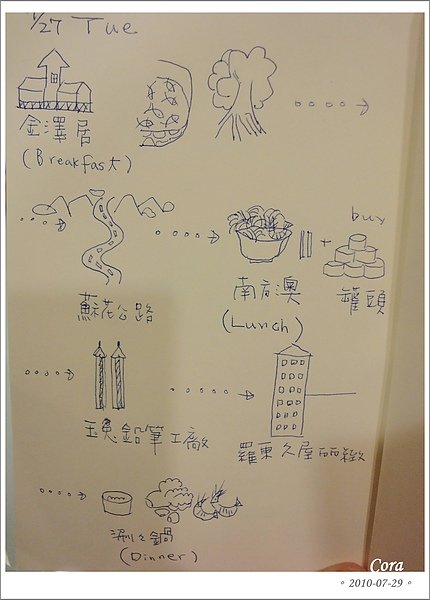 7/27 Tue
金澤居
(Breakfast)
buy
+
蘇花公路
南方澳
罐頭
(Lunch)
玉兔鉛筆工廠
羅東久屋
涮涮鍋
(Dinner)
Cora
。2010-07-29。